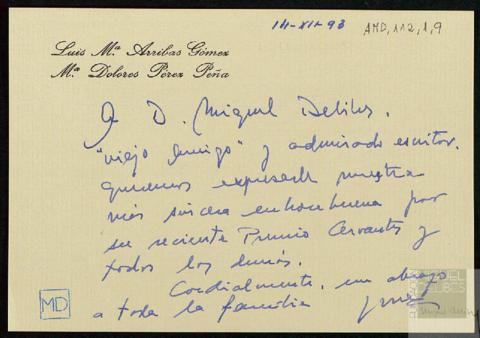 14-XII-93
AMD,112,1,9
Luis Mª Arribas Gómez
Mª Dolores Pérez Peña
A D. Miguel Delibes.
"viejo amigo" y admirado escritor.
queremos expresarle nuestra
más sincera enhorabuena por
su reciente Premio Cervantes y
todos los demás.
Cordialmente, un abrazo
a toda la familia
MD